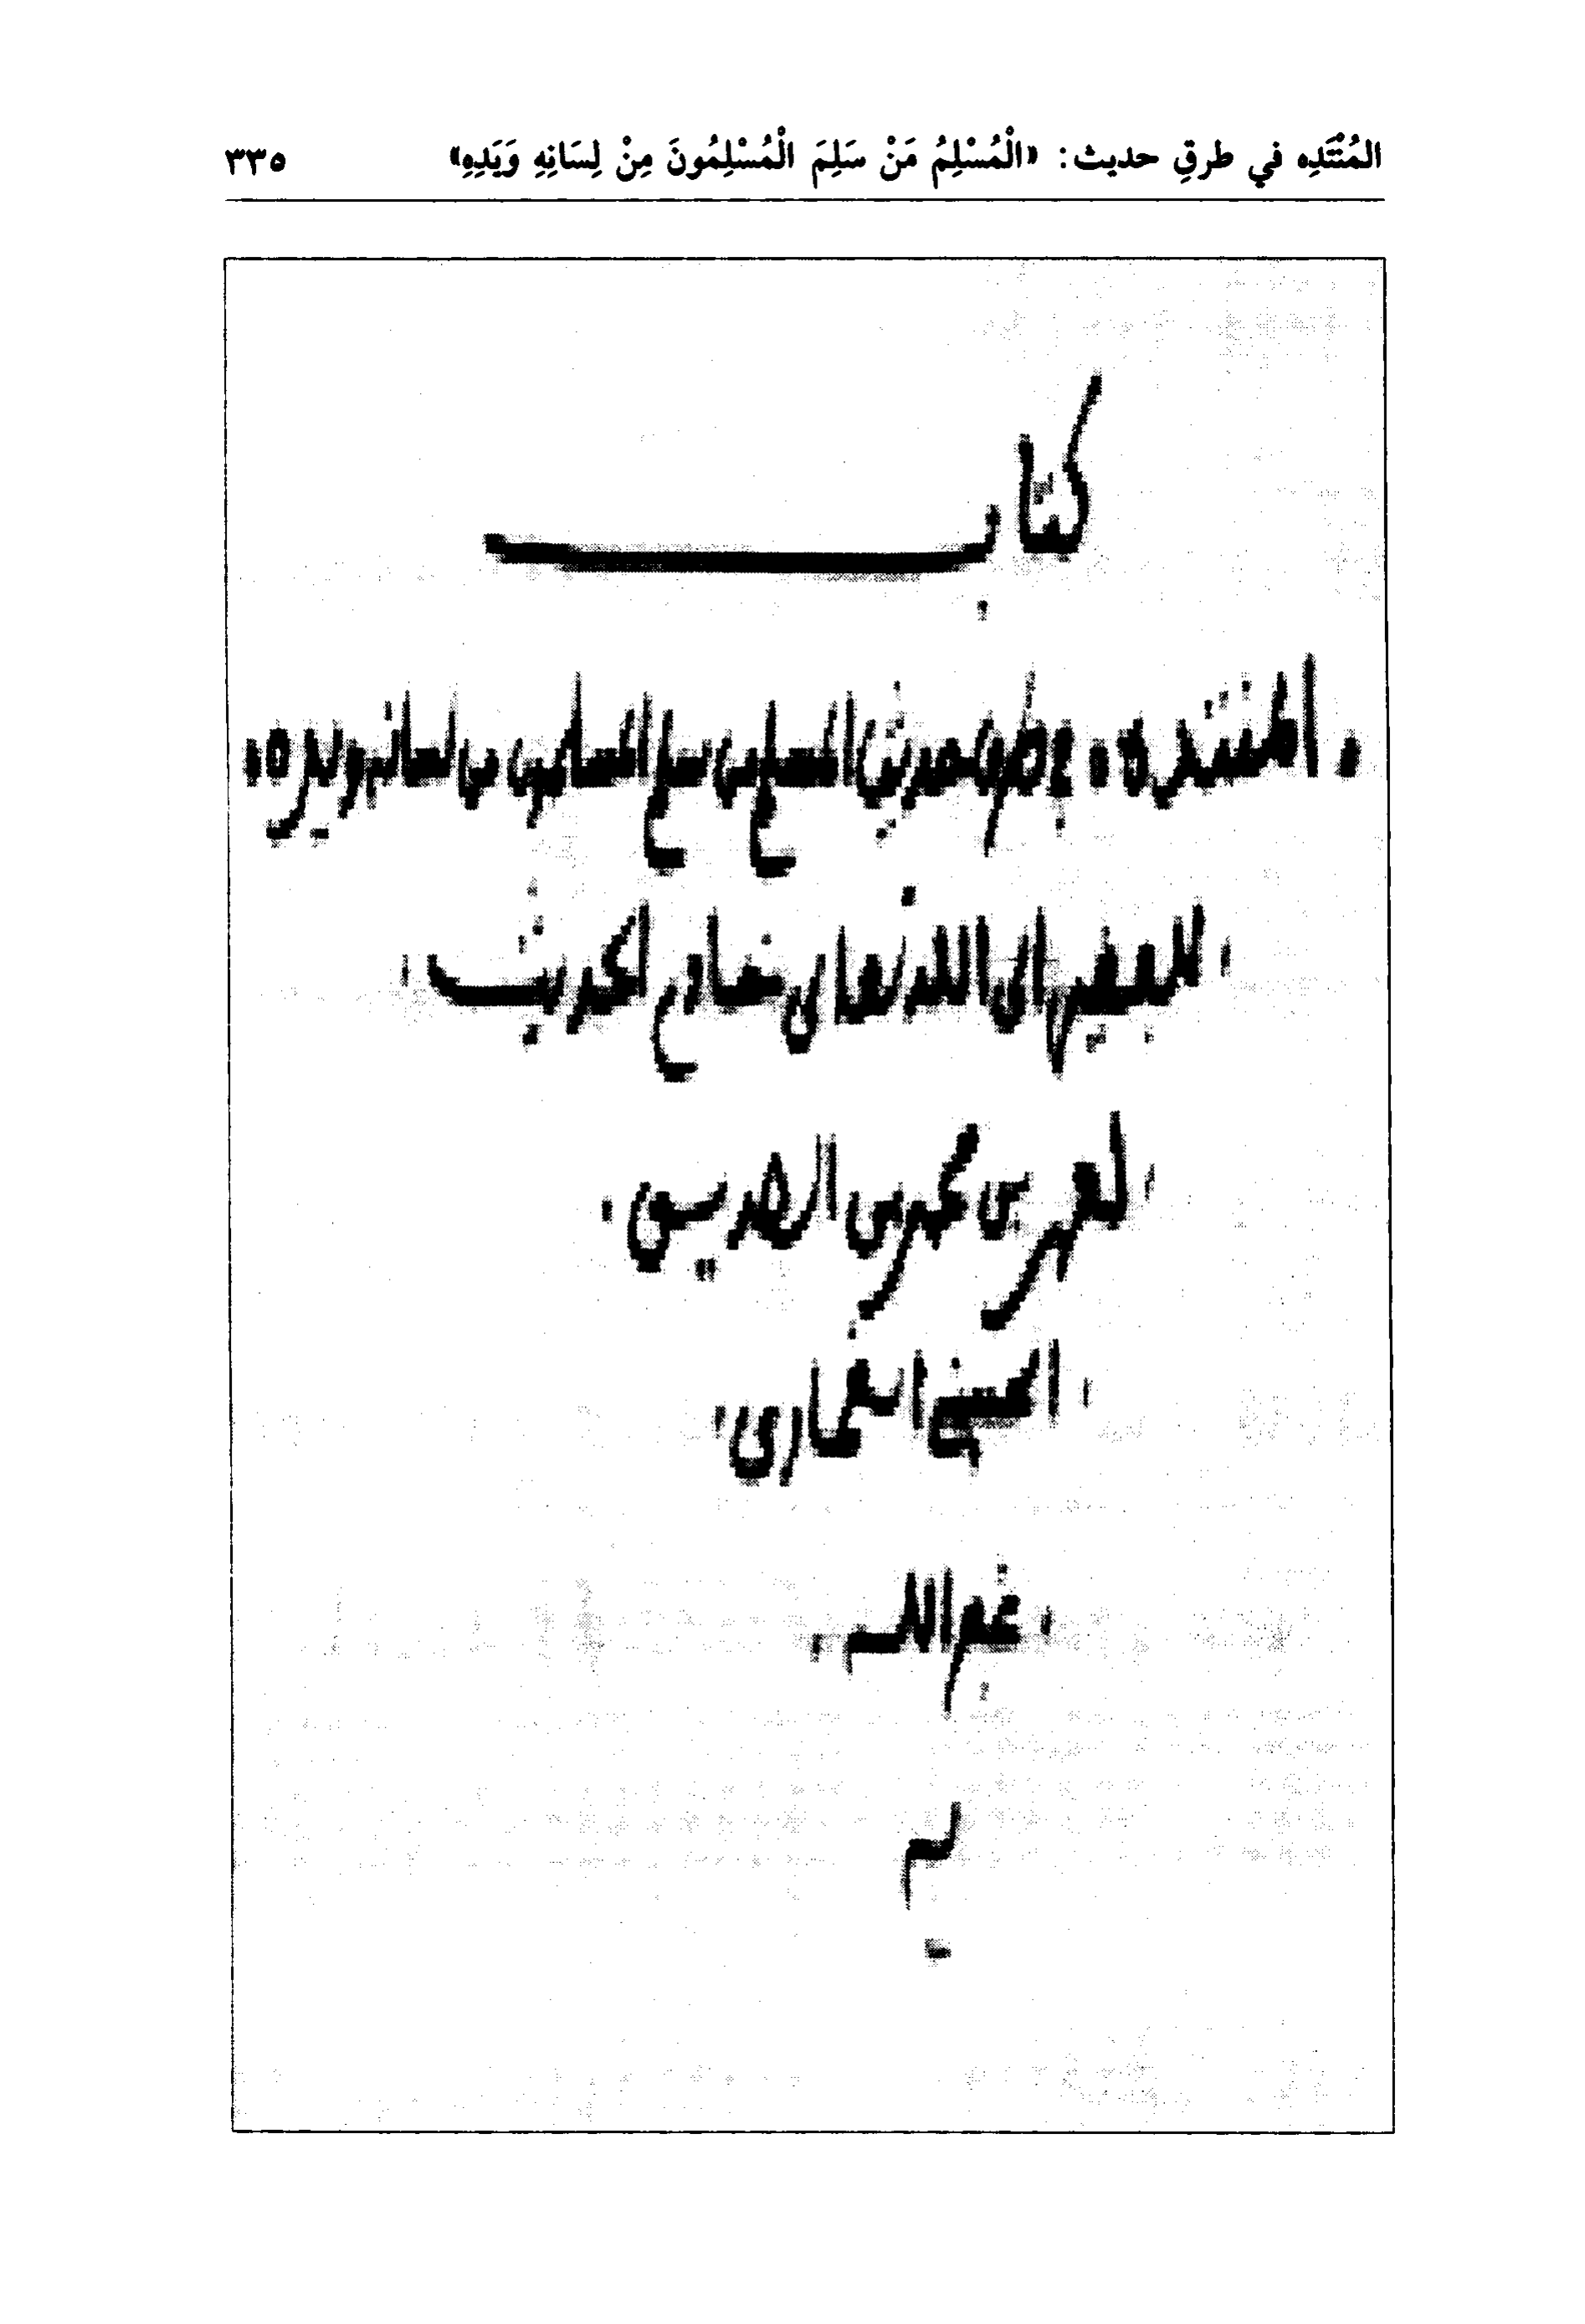 المُنْتَدِه في طرقِ حديث: «الْمُسْلِمُ مَنْ سَلِمَ الْمُسْلِمُونَ مِنْ لِسَانِهِ وَيَدِهِ» ٣٣٥
كتاب
المنتده في طرق حديث المسلم من سلم المسلمون من لسانه ويده
للعبد الفقير الى الله تعالى خادم الحديث
احمد بن محمد بن الصديق
الحسني الغماري
غفر الله
له